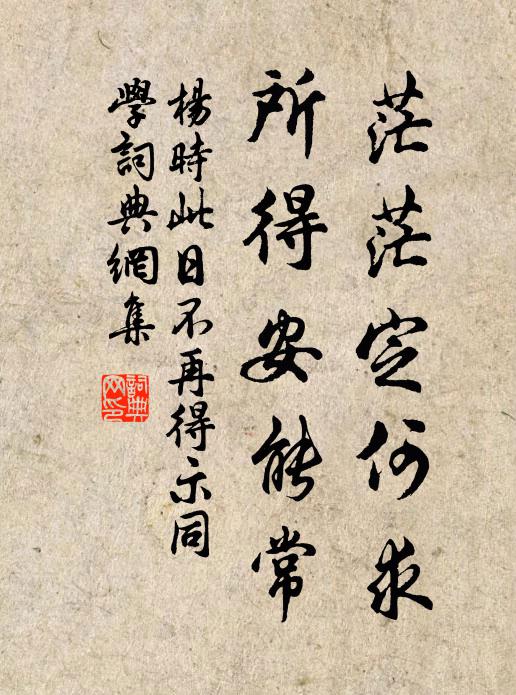 茫茫定何求
所得安能常
楊時此日不再得示同
學詞典網集
詞典網印